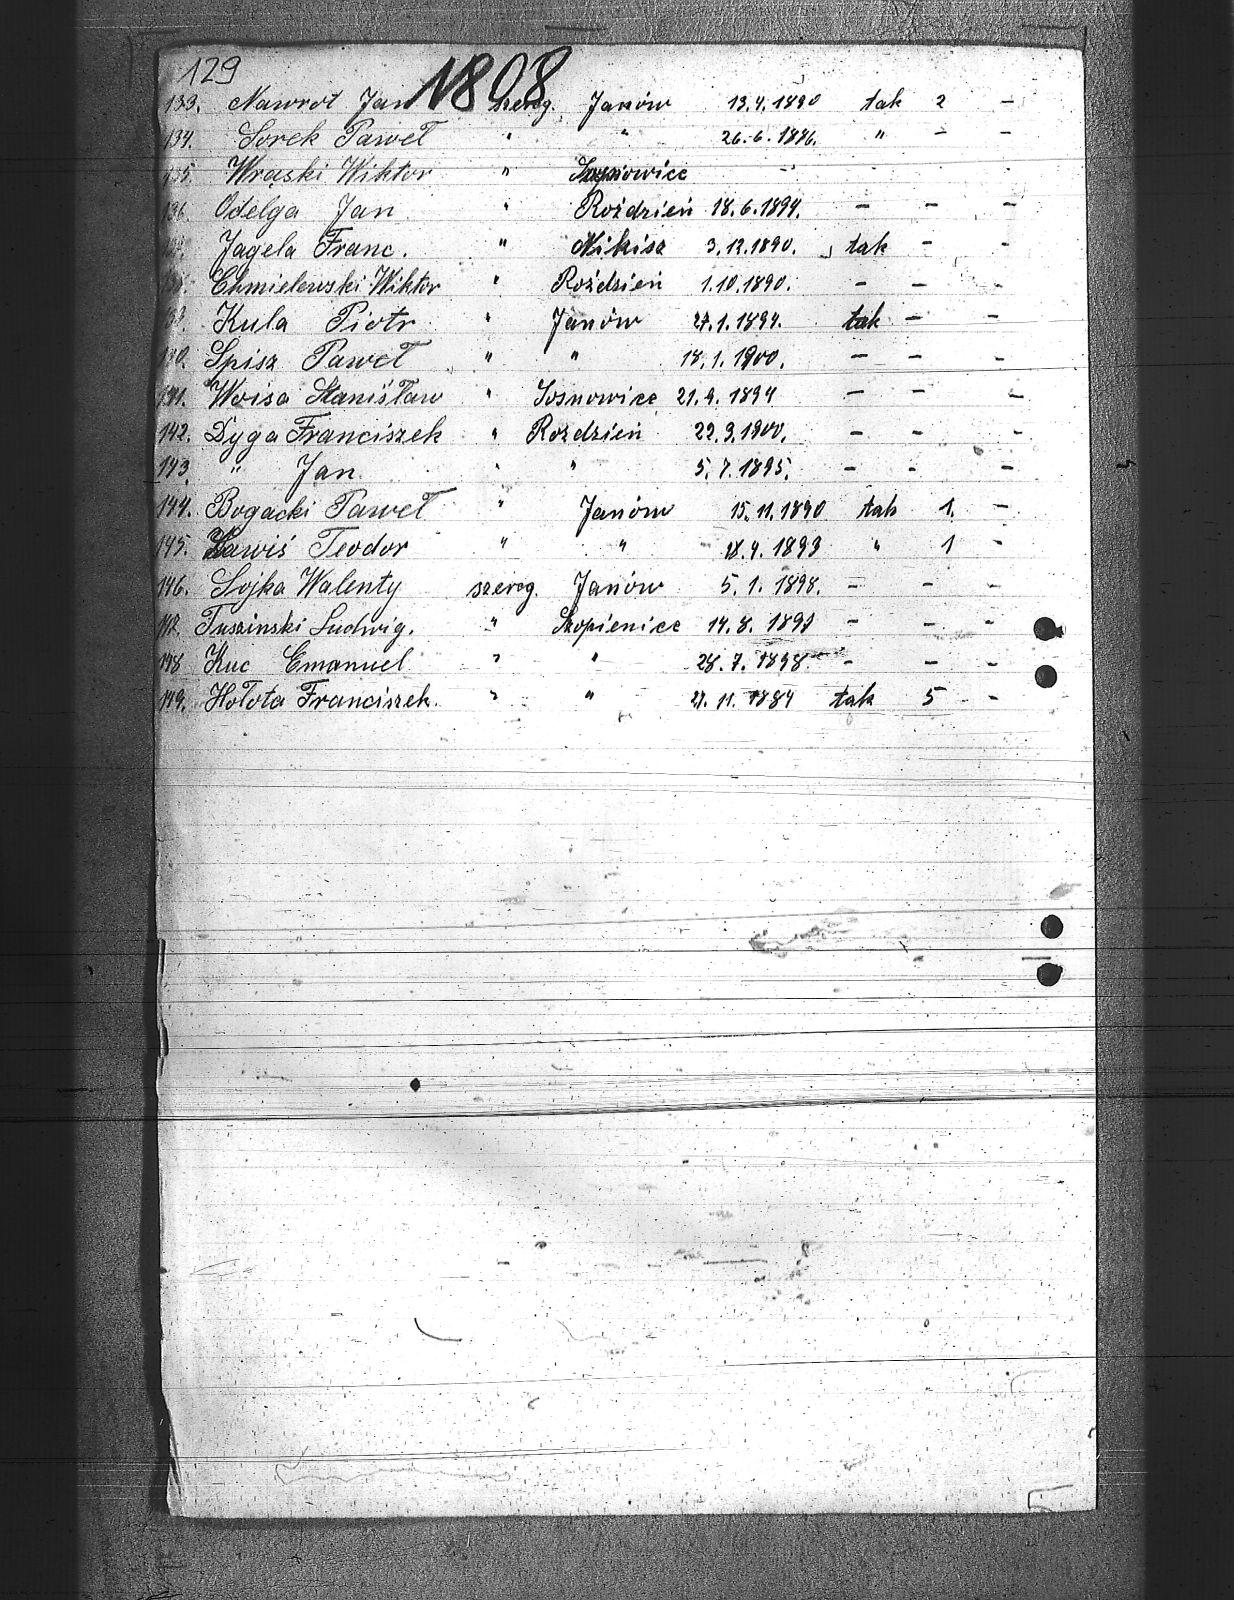 129
1808
133. Nawrot Jan szereg. Janów 13.4.1890 tak 2 –
134. Sorek Paweł " " 26.6.1886. " – –
135. Wrąski Wiktor " – – – –
136. Odelga Jan " Roździeń 18.6.1894. – – –
Jagela Franc. " Nikisz 3.12.1890. tak – –
Chmielewski Wiktor " Roździeń 1.10.1890. – – –
Kula Piotr " Janów 27.1.1894. tak – –
Spisz Paweł " " 18.1.1900. – – –
141. Woisa Stanisław " Sosnowice 21.9.1894 – – –
142. Dyga Franciszek " Rozdzień 22.3.1900. – – –
143. " Jan " " 5.7.1895. – – –
144. Bogacki Paweł " Janów 15.11.1890 tak 1. –
145. Teodor " " 18.4.1893 " 1 –
146. Sojka Walenty szereg. Janów 5.1.1898. – – –
Tuszinski Ludwig. " Szopienice 14.8.1897 – – –
148 Kuc Emanuel " " 28.7.1898 – – –
149. Hołota Franciszek. " " 27.11.1884 tak 5 –
5